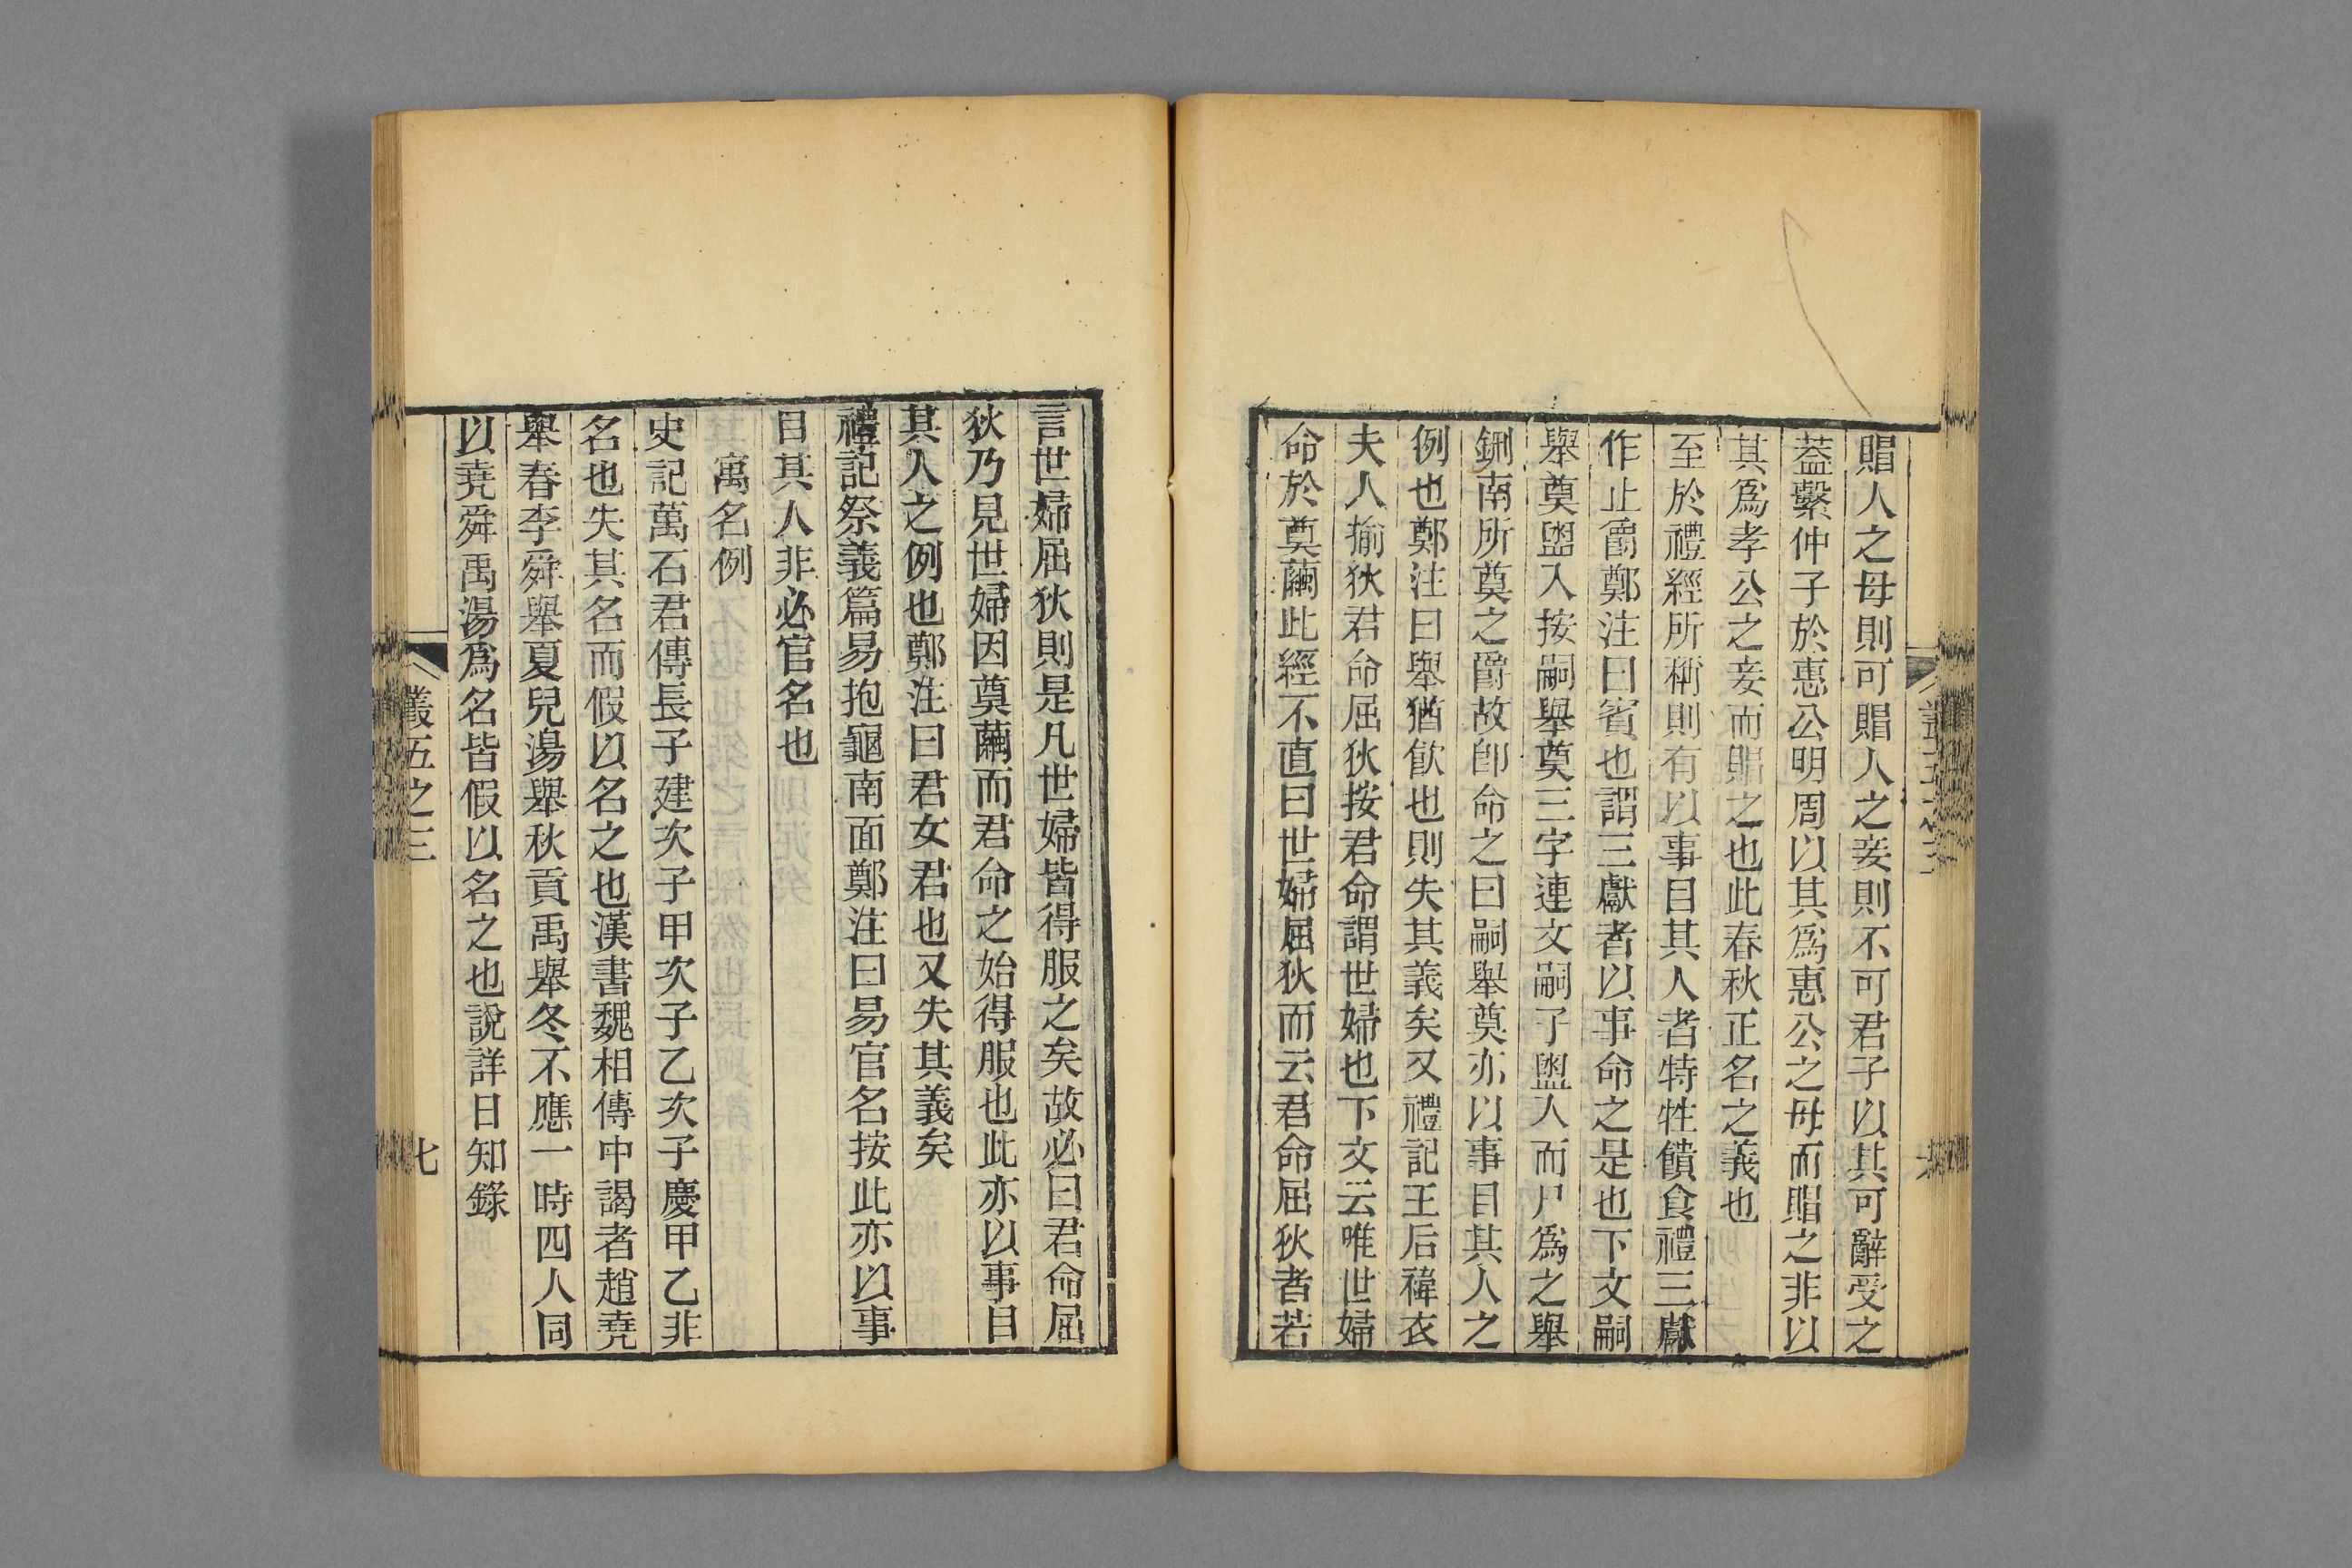 賵人之母則可賵人之妾則不可君子以其可辭受之
葢繫仲子於惠公明周以其爲惠公之母而賵之非以
其爲孝公之妾而賵之也此春秋正名之義也
至於禮經所稱則有以事目其人者特牲饋食禮三獻
作止爵鄭注曰賓也謂三獻者以事命之是也下文嗣
舉奠盥入按嗣舉奠三字連文嗣子盥入而尸爲之舉
鉶南所奠之爵故卽命之曰嗣舉奠亦以事目其人之
例也鄭注曰舉猶飮也則失其義矣又禮記王后褘衣
夫人揄狄君命屈狄按君命謂世婦也下文云唯世婦
命於奠繭此經不直曰世婦屈狄而云君命屈狄者若
言世婦屈狄則是凡世婦皆得服之矣故必曰君命屈
狄乃見世婦因奠繭而君命之始得服也此亦以事目
其人之例也鄭注曰君女君也又失其義矣
禮記祭義篇易抱龜南面鄭注曰易官名按此亦以事
目其人非必官名也
寓名例
史記萬石君傳長子建次子甲次子乙次子慶甲乙非
名也失其名而假以名之也漢書魏相傳中謁者趙堯
舉春李舜舉夏兒湯舉秋貢禹舉冬不應一時四人同
以堯舜禹湯爲名皆假以名之也說詳日知錄
叢五之三
七